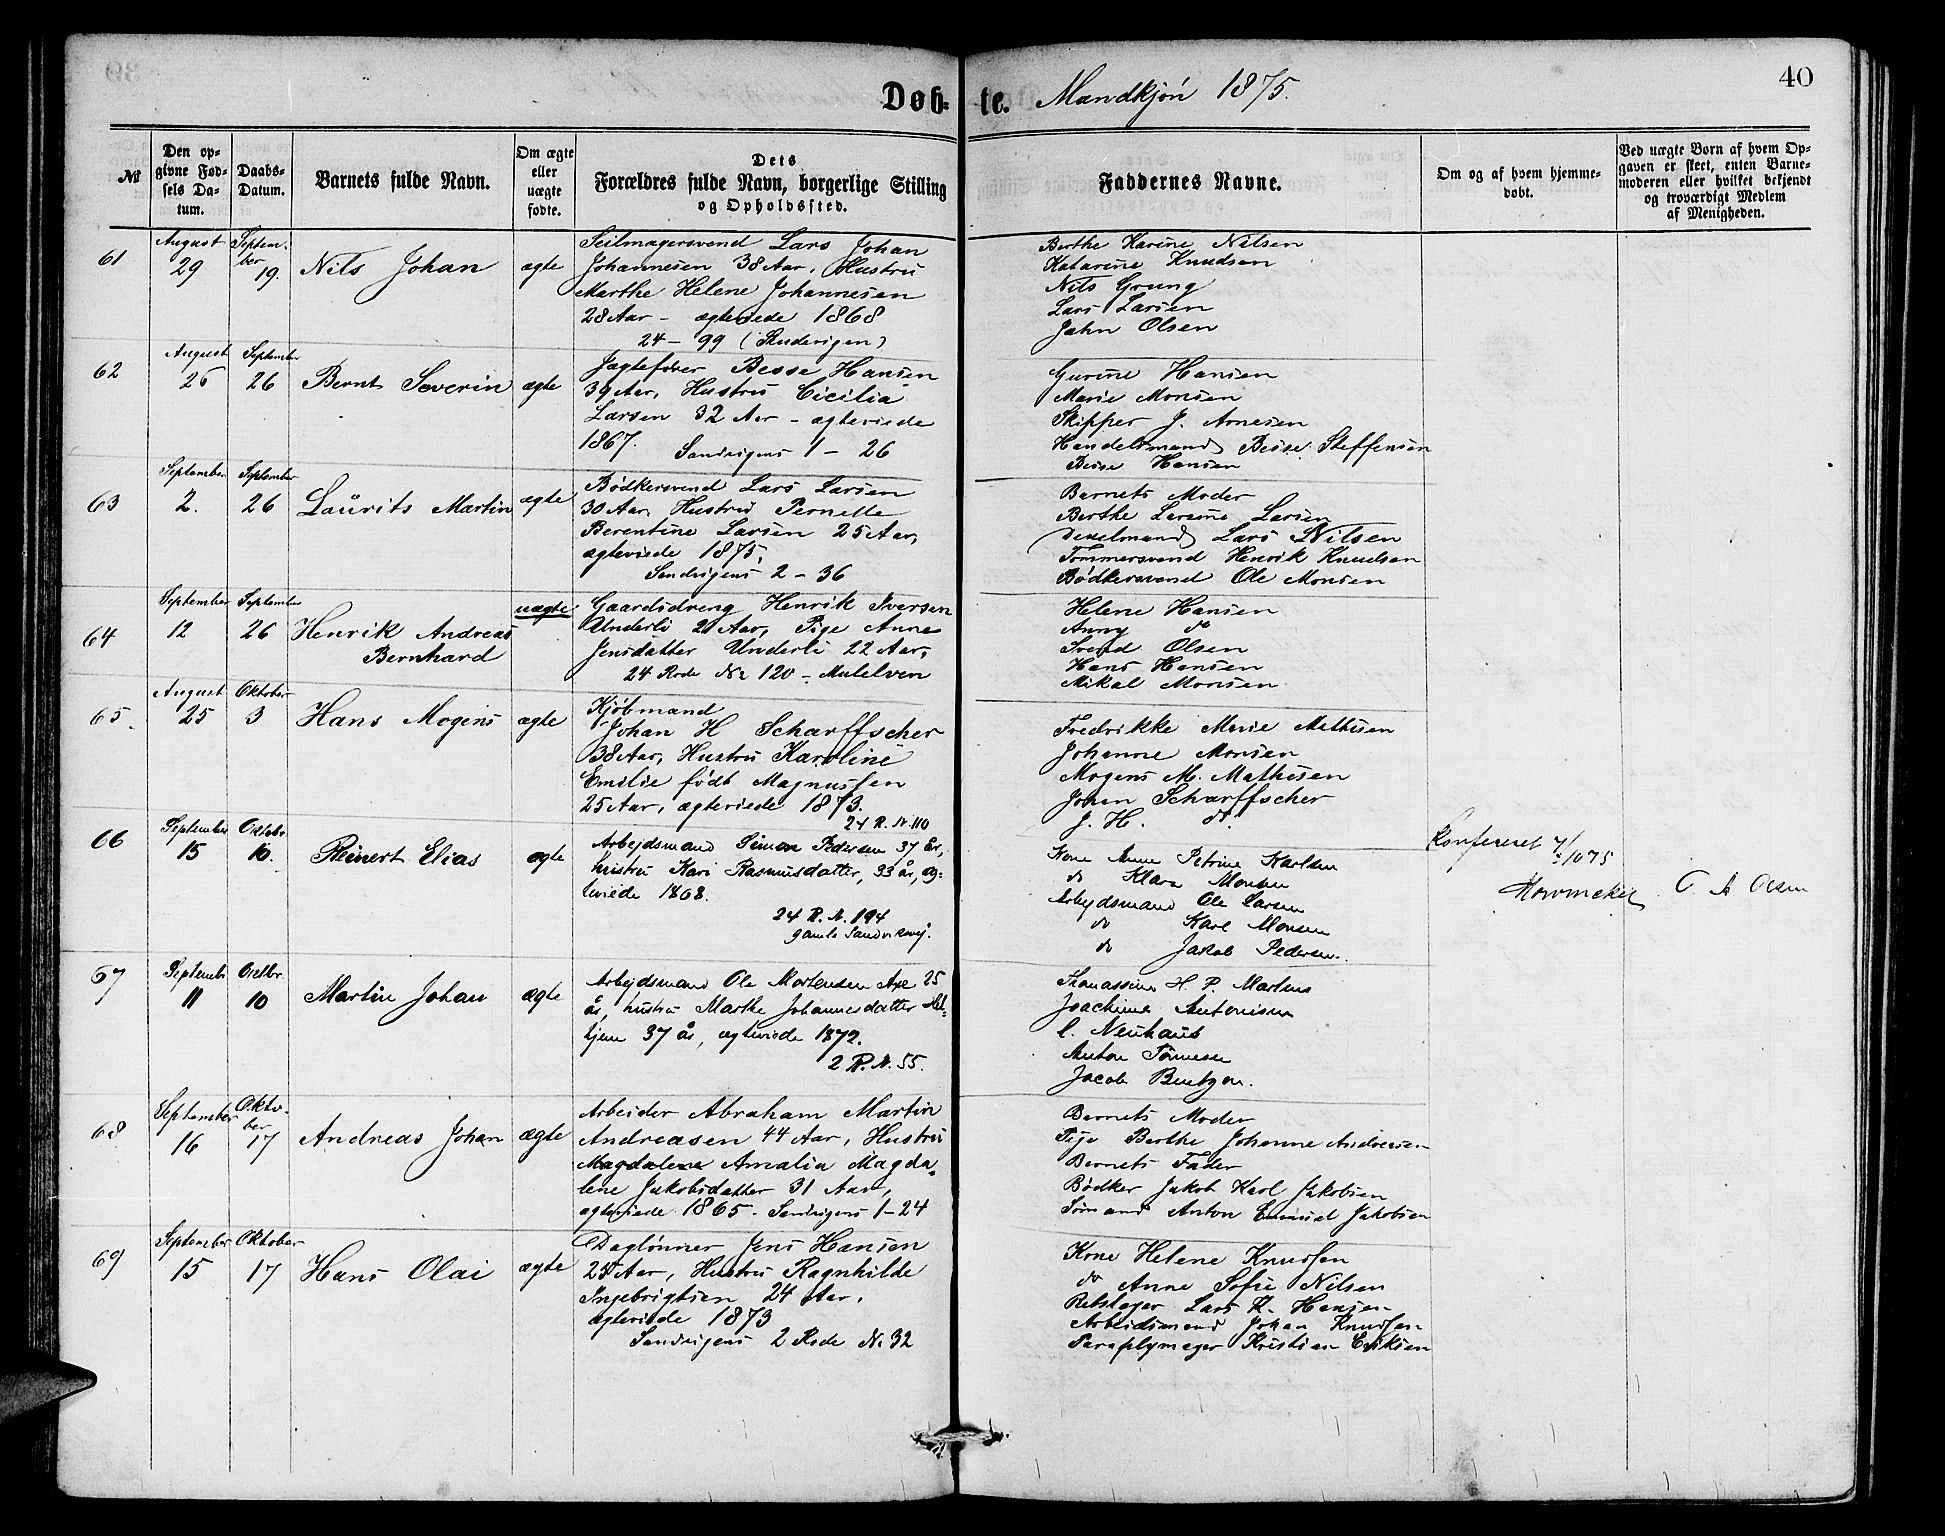 Døb-te. Mandkjøn 1875.
40
№
Den op-
givne Fød-
sels Da-
tum.
Daabs-
Datum.
Barnets fulde Navn.
Om ægte
eller
uægte
fødte.
Dets
Forældres fulde Navn, borgerlige Stilling
og Opholdssted.
Faddernes Navne.
Om og af hvem hjemme-
døbt.
Ved uægte Børn af hvem Op-
gaven er skeet, enten Barne-
moderen eller hvilket bekjendt
og troværdigt Medlem
af Menigheden.
61
August
29
Septem-
ber
19.
Nils Johan
ægte
Seilmagersvend Lars Johan
Johannesen 38 Aar, Hustru
Marthe Helene Johannesen
28 Aar - ægteviede 1868
24 - 99 (Skudevigen)
Berthe Karine Nilsen
Katarine Knudsen
Nils Grung
Lars Larsen
John Olsen
62
August
26
September
26
Bernt Severin
ægte
Jægtefører Besse Hansen
39 Aar, Hustru Cicilia
Larsen 32 Aar - ægteviede
1867. Sandvigens 1 - 26
Gurine Hansen
Marie Monsen
Skipper J. Arnesen
Handelsmand Besse Steffensen
Besse Hansen
63
September
2.
September
26
Laurits Martin
ægte
Bødkersvend Lars Larsen
30 Aar, Hustru Pernelle
Berentine Larsen 25 Aar,
ægteviede 1875,
Sandvigens 2 - 36
Barnets Moder
Berthe Larsen
Lars Nilsen
Tømmersvend Henrik Knudsen
Bødkersvend Ole Monsen
64
September
12
September
26
Henrik Andreas
Bernhard
uægte
Gaardsdreng Henrik Iversen
Underli 21 Aar, Pige Anne
Jensdatter Underli 22 Aar,
24 Rode No 120 - Mulelven
Helene Hansen
Anny do
Svend Olsen
Hans Hansen
Mikal Monsen
65.
August
25
Oktober
3
Hans Mogens
ægte
Kjøbmand
Johan H Scharffscher
38 Aar, Hustru Karoline
Emilie født Magnussen
25 Aar, ægteviede 1873.
24 R. N. 110
Fredrikke Marie Mathisen
Johanne Monsen
Mogens M. Mathisen
Johan Scharffscher
J. H. do.
66
September
15
Oktobr
10.
Reinert Elias
ægte
Arbejdsmand Simon Pedersen 37 År,
hustru Kari Rasmusdatter, 33 år, æg-
teviede 1868.
24 R. N. 194
gamle Sandviksvej.
Kone Anne Petrine Karlsen
do Klara Monsen
Arbejdsmand Ole Larsen
do Karl Monsen
do Jakob Pedersen.
Konfereret
67
Septembr
11
Octbr.
10
Martin Johan
ægte
Arbejdsmand Ole Mortensen Axe 25
år, hustru Marthe Johannesdatter Hel-
tjem 37 år, ægteviede 1872.
2 R. N. 55.
H. P. Martens
Joachime Antonisen
C. Neuhaus
Anton Tønnesen
Jacob Bentzon.
68
September
16
Okto-
ber
17
Andreas Johan
ægte
Arbeider Abraham Martin
Andreasen 44 Aar, Hustru
Magdalene Amalia Magda-
lene Jakobsdatter 31 Aar,
ægteviede 1865 - Sandvigens 1-24
Barnets Moder
Pige Berthe Johanne Andreasen
Barnets Fader
Bødker Jakob Karl Jakobsen
Sømand Anton Emanuel Jakobsen
69
September
15
Oktober
17
Hans Olai
ægte
Daglønner Jens Hansen
25 Aar, Hustru Ragnhilde
Ingebrigtsen 24 Aar,
ægteviede 1873
Sandvigens 2 Rode No 32
Kone Helene Knudsen
do Anne Sofie Nilsen
Rebslager Lars K. Hansen
Arbeidsmand Johan Knudsen
Paraplymager Kristian Eriksen